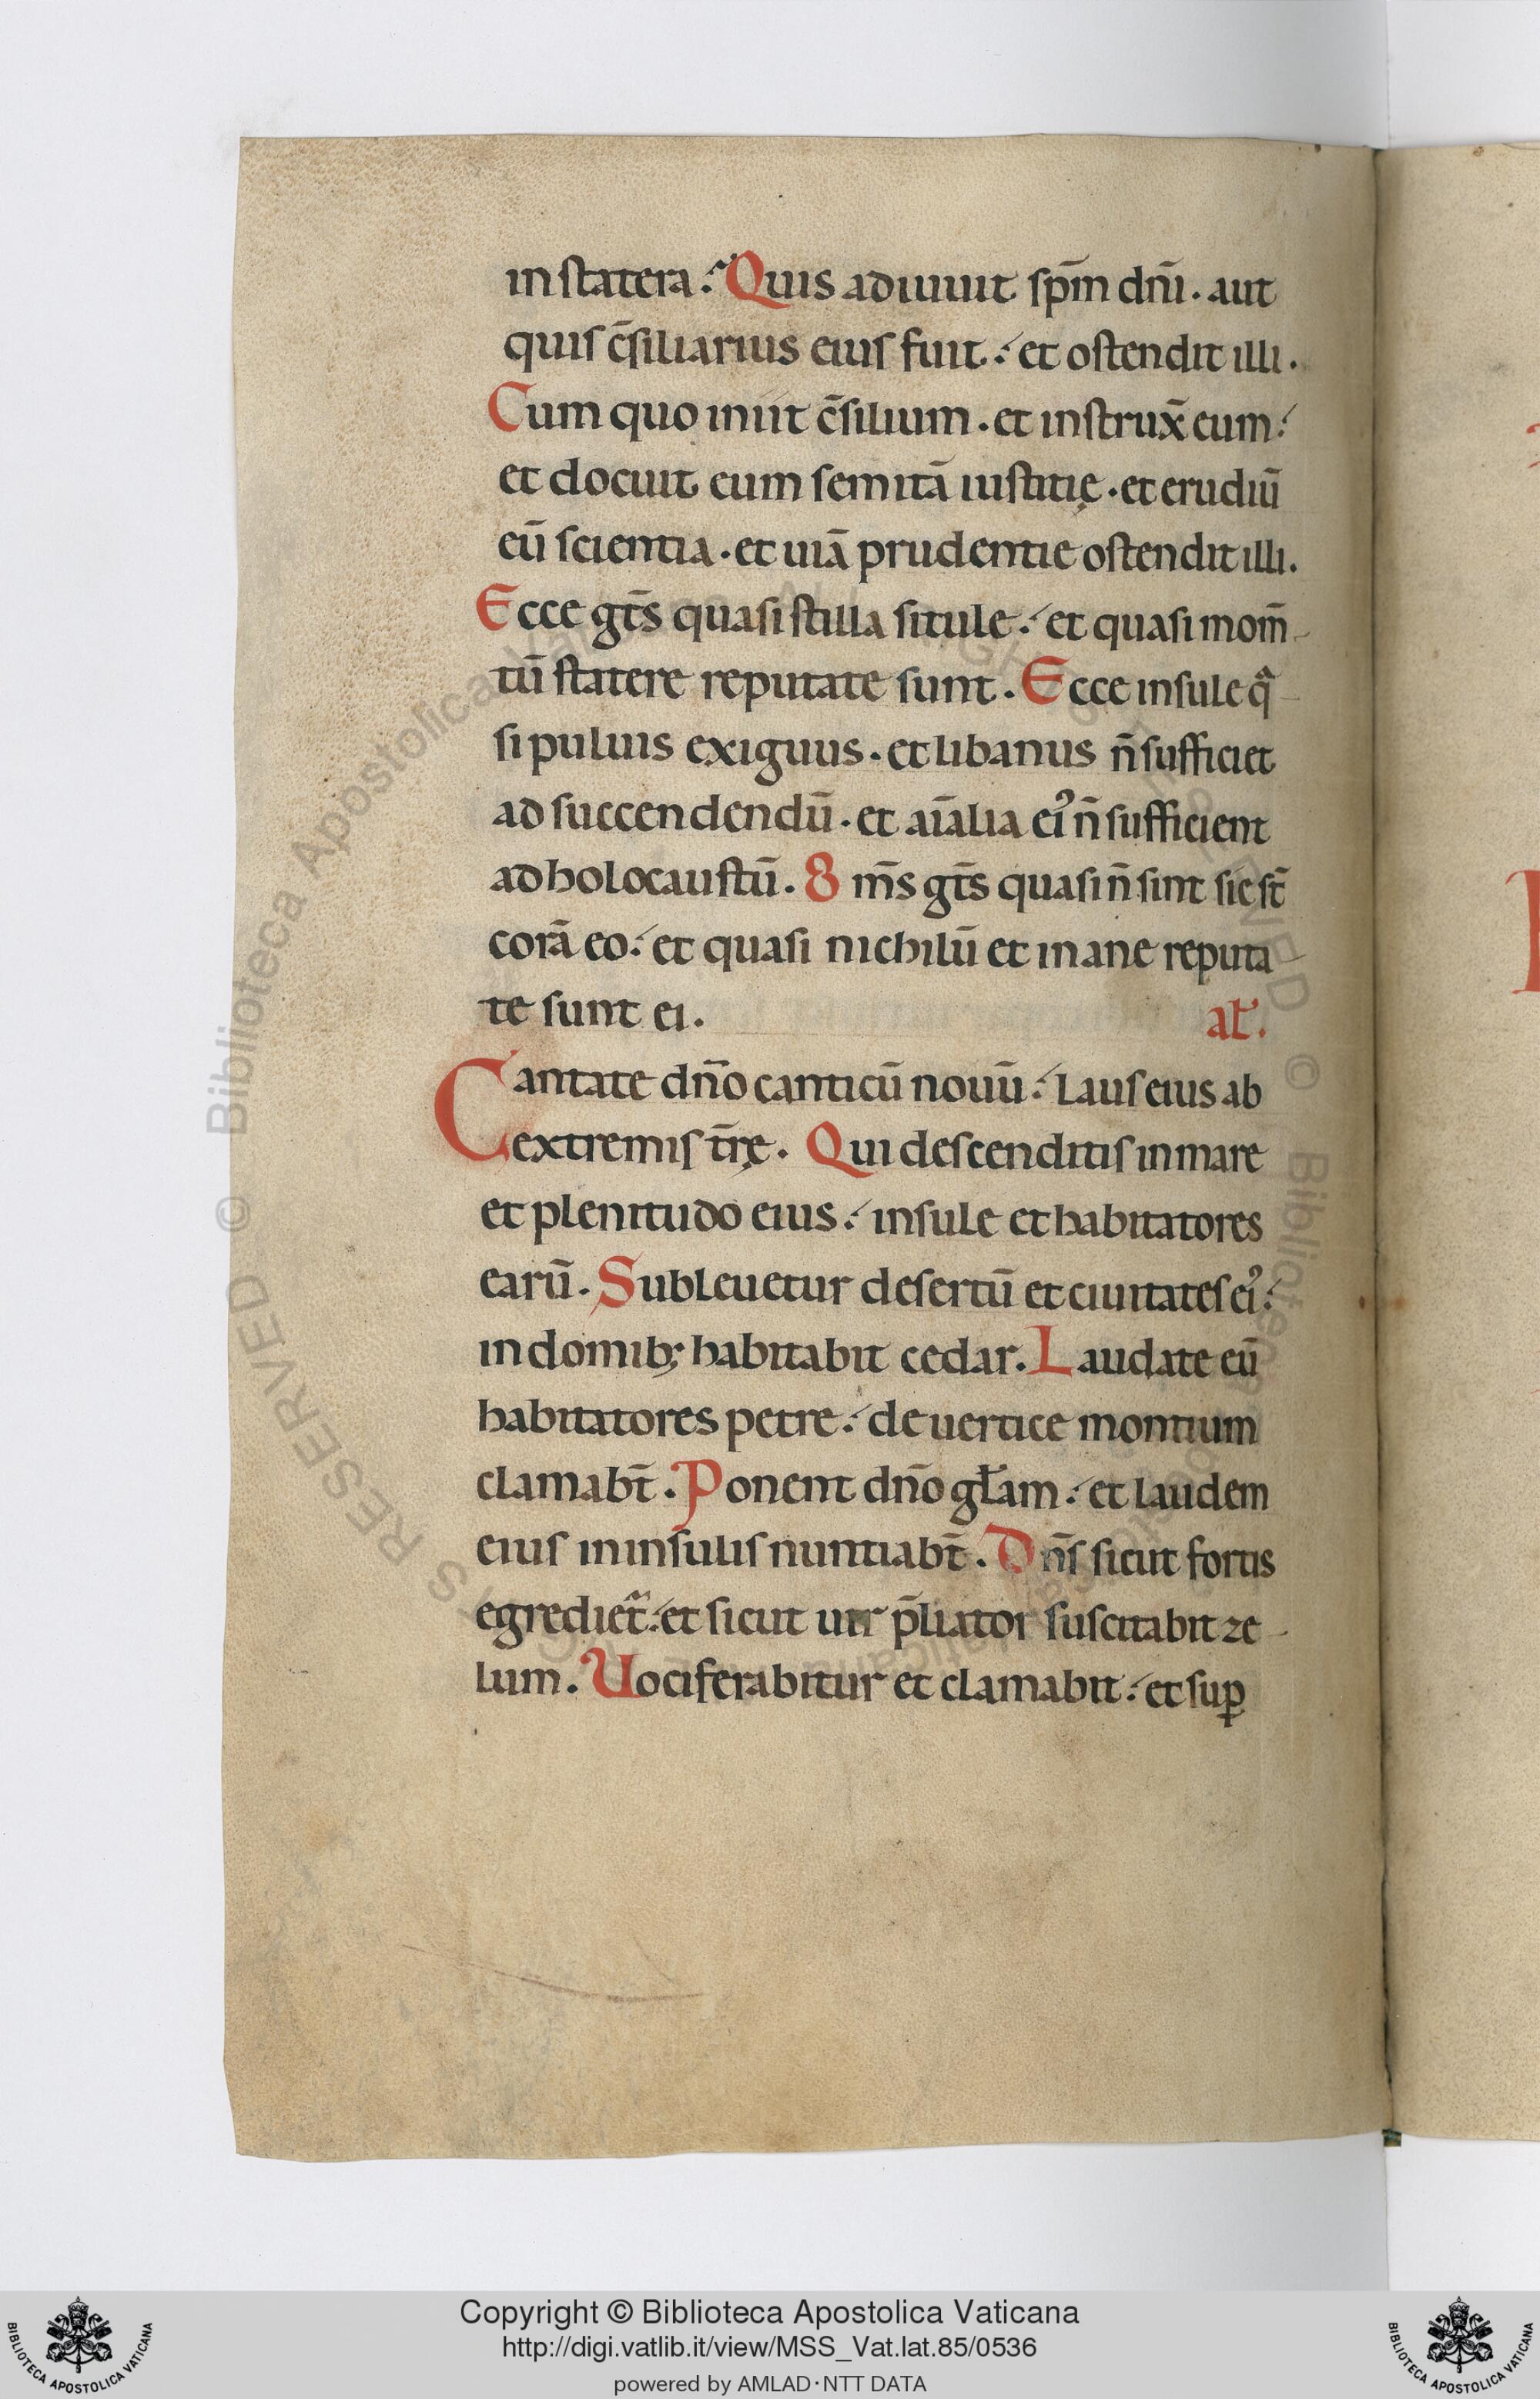 in statera. Quis adiuuit sp̄m dn̄i. aut
quis c̄siliarius eius fuit. et ostendit illi.
Cum quo iniit c̄silium. et instrux̄ eum.
et docuit eum semitā iustitię. et erudiū
eū scientia. et uiā prudentie ostendit illi.
Ecce gt̄s quasi stilla situle. et quasi mom̄-
tū statere reputate sunt. Ecce insule qᷓ-
si puluis exiguus. et libanus n̄ sufficiet
ad succendendū. et aīalia eiꝰ n̄ sufficient
ad holocaustū. Om̄s gt̄s quasi n̄ sint sic st̄
corā eo. et quasi nichilū et inane reputa-
te sunt ei. al'.
Cantate dn̄o canticū nouū. Laus eius ab
extremis tr̄ę. Qui descenditis in mare
et plenitudo eius. insule et habitatores
earū. Subleuetur desertū et ciuitates eiꝰ.
in domib; habitabit cedar. Laudate eū
habitatores petre. de uertice montium
clamabt̄. Ponent dn̄o gl̄am. et laudem
eius in insulis nuntiabt̄. Dn̄s sicut fortis
egrediet᷑. et sicut uir p̄liator suscitabit ze-
lum. Uociferabitur et clamabit. et suꝑ
Copyright © Biblioteca Apostolica Vaticana
http://digi.vatlib.it/view/MSS_Vat.lat.85/0536
powered by AMLAD·NTT DATA
BIBLIOTECA APOSTOLICA VATICANA
BIBLIOTECA APOSTOLICA VATICANA